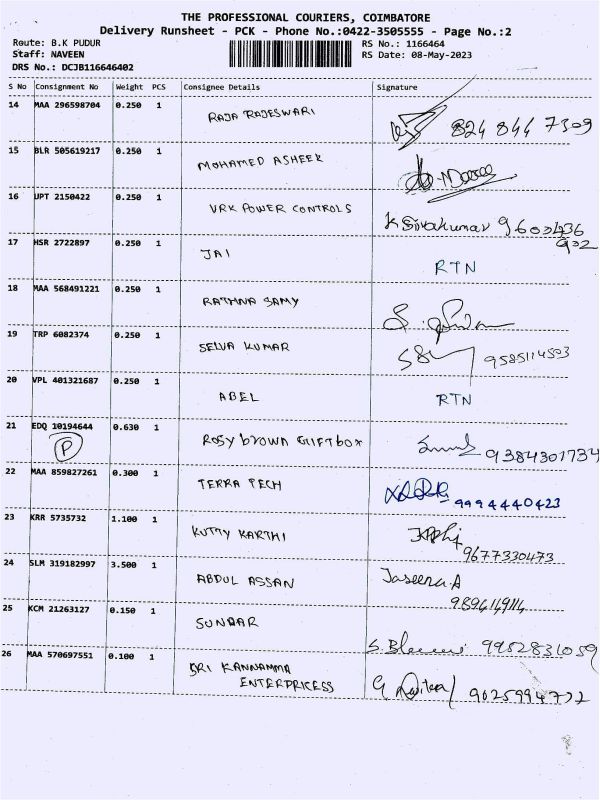 THE PROFESSIONAL COURIERS, COIMBATORE
Delivery Runsheet - PCK - Phone No.:0422-3505555 - Page No.:2
Route: B.K PUDUR RS No.: 1166464
Staff: NAVEEN RS Date: 08-May-2023
DRS No.: DCJB116646402
S No Consignment No Weight PCS Consignee Details Signature
14 MAA 296598704 0.250 1 RAJA RAJESWARI 824 844 7309
15 BLR 505619217 0.250 1 MOHAMED ASHEEK
16 UPT 2150422 0.250 1 VRK POWER CONTROLS K Sivakumar
17 HSR 2722897 0.250 1 JAI RTN
18 MAA 568491221 0.250 1 RATHNA SAMY
19 TRP 6082374 0.250 1 SELVA KUMAR 9585114503
20 VPL 401321687 0.250 1 ABEL RTN
21 EDQ 10194644 0.630 1 ROSY brown GIIFTbOX 9384301734
P
22 MAA 859827261 0.300 1 TERRA TECH 9994440423
23 KRR 5735732 1.100 1 KUTTY KARTHI
9677330473
24 SLM 319182997 3.500 1 ABDUL ASSAN Jaseena.A
25 KCM 21263127 0.150 1 SUNDAR 9952831059
26 MAA 570697551 0.100 1 SRI KANNAMMA
ENTERPRICESS 9025994772